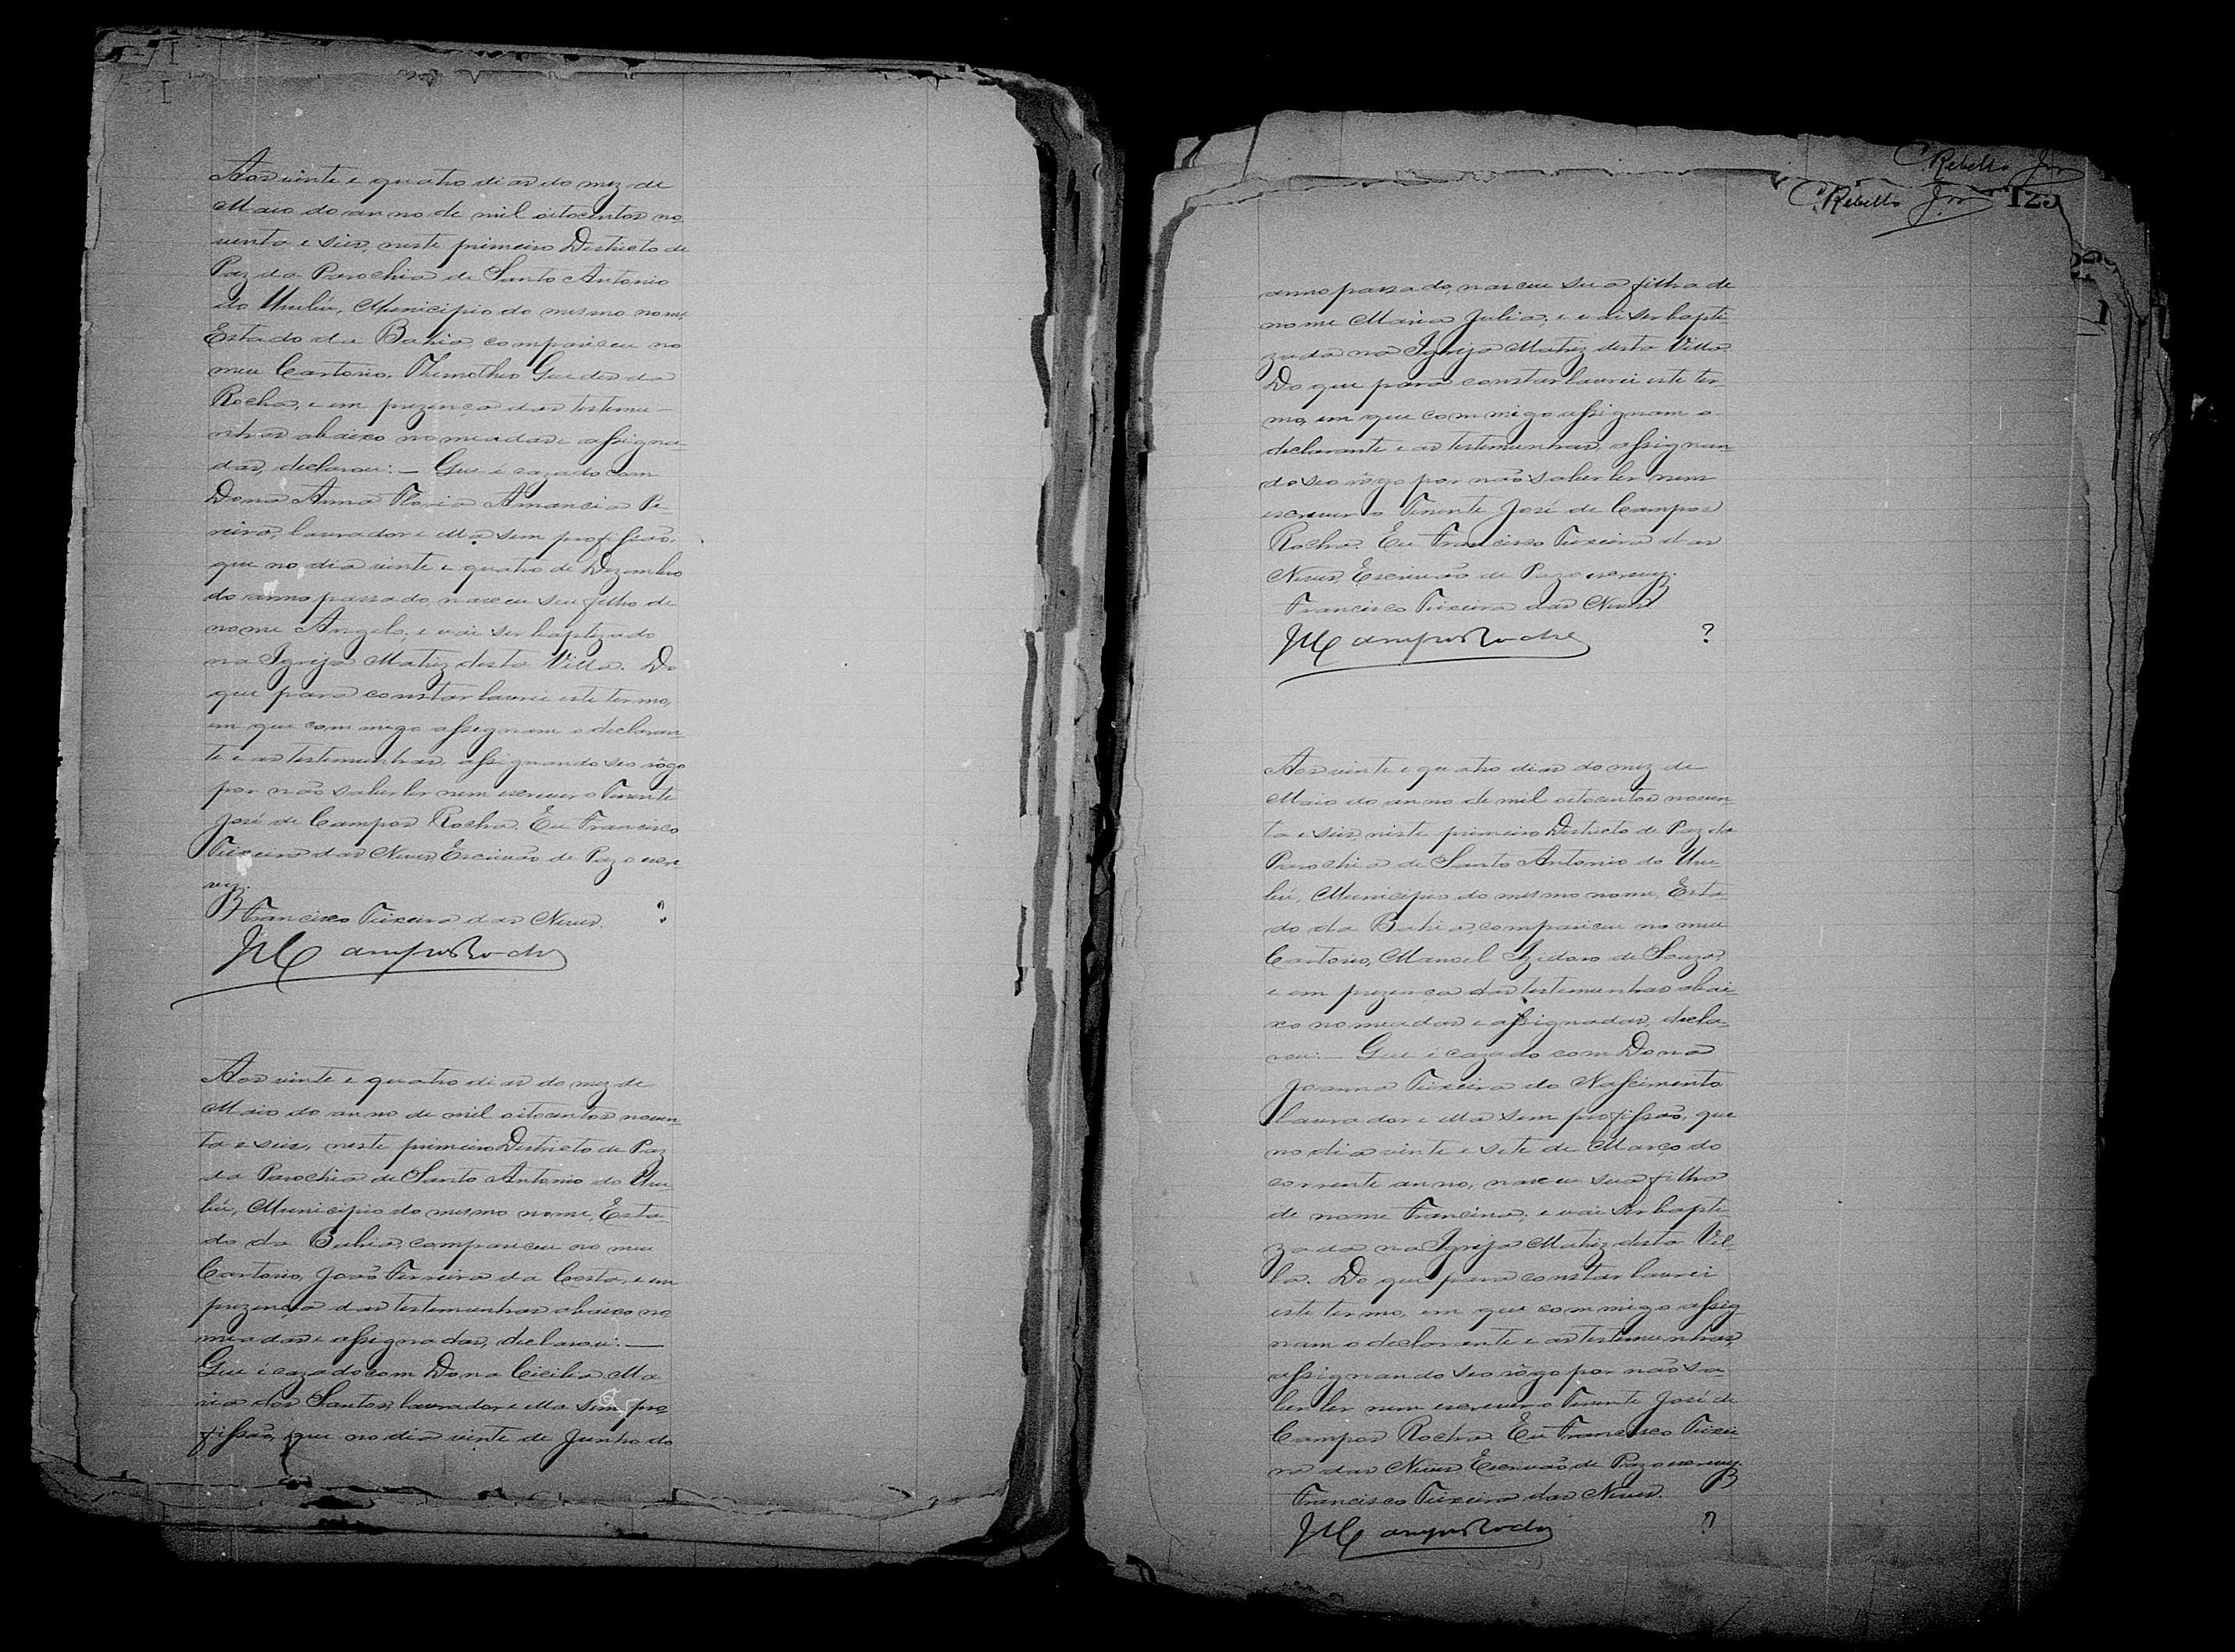 Aos vinte e quatro dias do mez de
Maio do anno de mil oitocentos no-
venta e seis, neste primeiro Destricto de
Paz da Parochia de Santo Antonio
do Urubú, Municipio do mesmo nome
Estado da Bahia, compareceu no
meu Cartorio, Themotheo Guedes da
Rocha, e em prezença das testemu-
nhas abaixo nomeadas e assigna-
das, declarou: — Que é cazado com
Dona Anna Amancia Pe-
reira, lavrador e ella sem profissão,
que no dia vinte e quatro de Dezembro
do anno passado, nasceu seu filho de
nome Angelo, e vai ser baptizado
na Igreja Matriz desta Villa. Do
que para constar lavrei este termo,
em que commigo assignam o declaran-
te e as testemunhas, assignando seo rôgo
por não saber ler nem escrever o Tenente
José de Campos Rocha. Eu Francisco
Teixeira das Neves, Escrivão de Paz o escre-
vy.
Francisco Teixeira das Neves. ?
JCamposRocha
Aos vinte e quatro dias do mez de
Maio do anno de mil oitocentos noven-
ta e seis, neste primeiro Destricto de Paz
da Parochia de Santo Antonio do Uru-
bú, Municipio do mesmo nome, Esta-
do da Bahia, compareceu no meu
Cartorio, João Ferreira da Costa, e em
prezença das testemunhas abaixo no-
meadas e assignadas, declarou: —
Que é cazado com Dona Cicilia Ma-
ria dos Santos, lavrador e ella sem pro-
fissão, que no dia vinte de Junho do
C. Rebello Jor
C. Rebello Jor 125
anno passado, nasceu sua filha de
nome Maria Julia, e vai ser bapti-
zada na Igreja Matriz desta Villa.
Do que para constar lavrei este ter-
mo, em que commigo assignam o
declarante e as testemunhas, assignan-
do seo rôgo por não saber ler nem
escrever o Tenente José de Campos
Rocha. Eu Francisco Teixeira das
Neves, Escrivão de Paz o escrevy.
Francisco Teixeira das Neves
JCamposRocha ?
Aos vinte e quatro dias do mez de
Maio do anno de mil oitocentos noven-
ta e seis, neste primeiro Destricto de Paz da
Parochia de Santo Antonio do Uru-
bú, Municipio do mesmo nome, Esta-
do da Bahia, compareceu no meu
Cartorio, Manoel Izidoro de Souza,
e em prezença das testemunhas abai-
xo nomeadas e assignadas, decla-
rou: — Que é cazado com Dona
Joanna Teixeira do Nascimento
lavrador e ella sem profissão, que
no dia vinte e sete de Março do
corrente anno, nasceu sua filha
de nome Francina, e vai ser bapti-
zada na Igreja Matriz desta Vil-
la. Do que para constar lavrei
este termo, em que commigo assig-
nam o declarante e as testemunhas,
assignando seo rôgo por não sa-
ber ler nem escrever o Tenente José de
Campos Rocha. Eu Francisco Teixei-
ra das Neves, Escrivão de Paz o escrevy.
Francisco Teixeira das Neves.
JCamposRocha ?